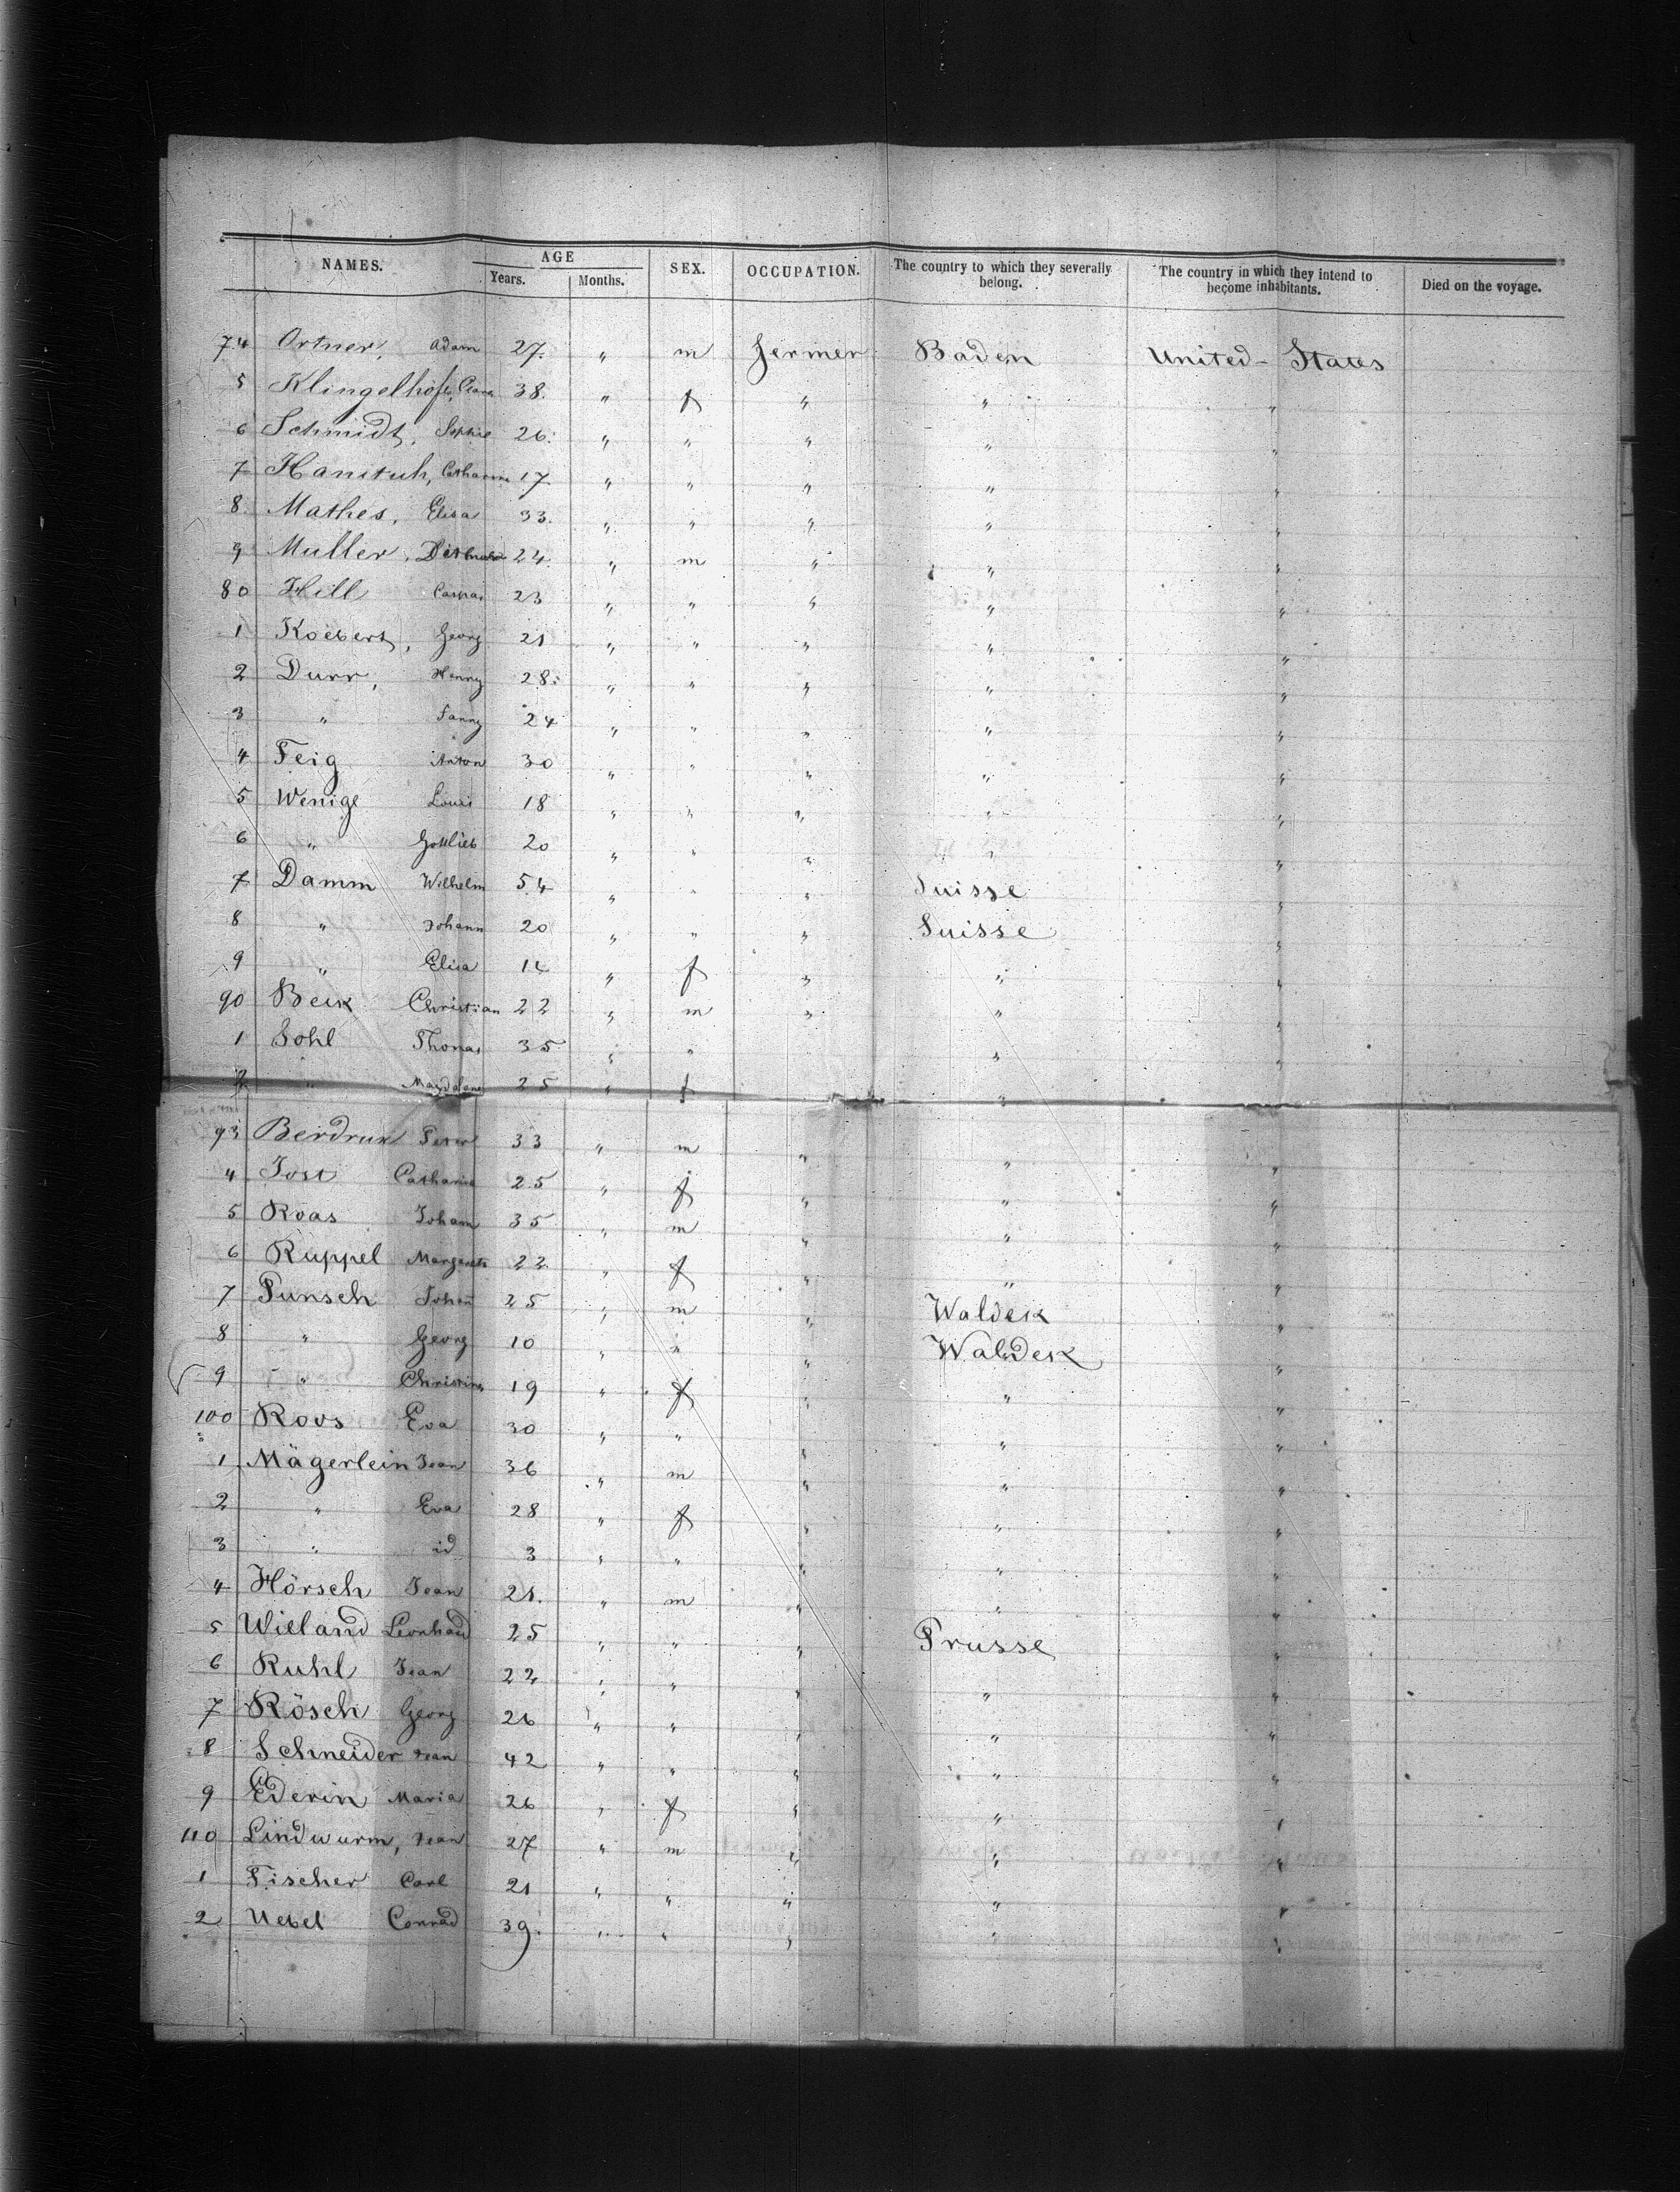 NAMES. AGE Years. Months. SEX. OCCUPATION. The country to which they severally belong. The country in which they intend to become inhabitants. Died on the voyage.
74 Ortner, Adam 27. " m fermer Baden United-States
5 Klingelhofer, 38. " f " " "
6 Schmidt, Sophie 26. " " " " "
7 Catharine 17 " " " " "
8. Mathes, Elisa 33. " " " " "
9 Muller, 24. " m " " "
80 Hill Caspar 23 " " " " "
1 Koebert, Georg 21 " " " " "
2 Durr, Henry 28. " " " " "
3 " Fanny 24 " " " " "
4 Feig Anton 30 " " " " "
5 Wenige Louis 18 " " " " "
6 " Gottlieb 20 " " " " "
7 Damm Wilhelm 54 " " " Suisse "
8 " Johann 20 " " " Suisse "
9 " Elisa 14 " f " " "
90 Beck Christian 22 " m " " "
1 Sohl Thomas 35 " " " "
2 " Magdalena 25 " f "
93 Berdrux Peter 33 " m " " "
4 Jost Catharina 25 " f " " "
5 Roas Johann 35 " m " " "
6 Ruppel Margareta 22 " f " " "
7 Punsch Johan 25 " m " Waldek "
8 " Georg 10 " " " Waldek "
9 " Christina 19 " f " " "
100 Roos Eva 30 " " " " "
1 Mägerlein Jean 36 " m " " "
2 " Eva 28 " f " " "
3 " id 3 " " " " "
4 Hörsch Jean 21. " m " " "
5 Wieland Leonhard 25 " " " Prusse "
6 Ruhl Jean 22 " " " " "
7 Rösch Georg 26 " " " " "
8 Schneider Jean 42 " " " " "
9 Ederin Maria 26 " f " " "
110 Lindwurm, Jean 27 " m " " "
1 Fischer Carl 21 " " " " "
2 Uebel Conrad 39. " " " " "